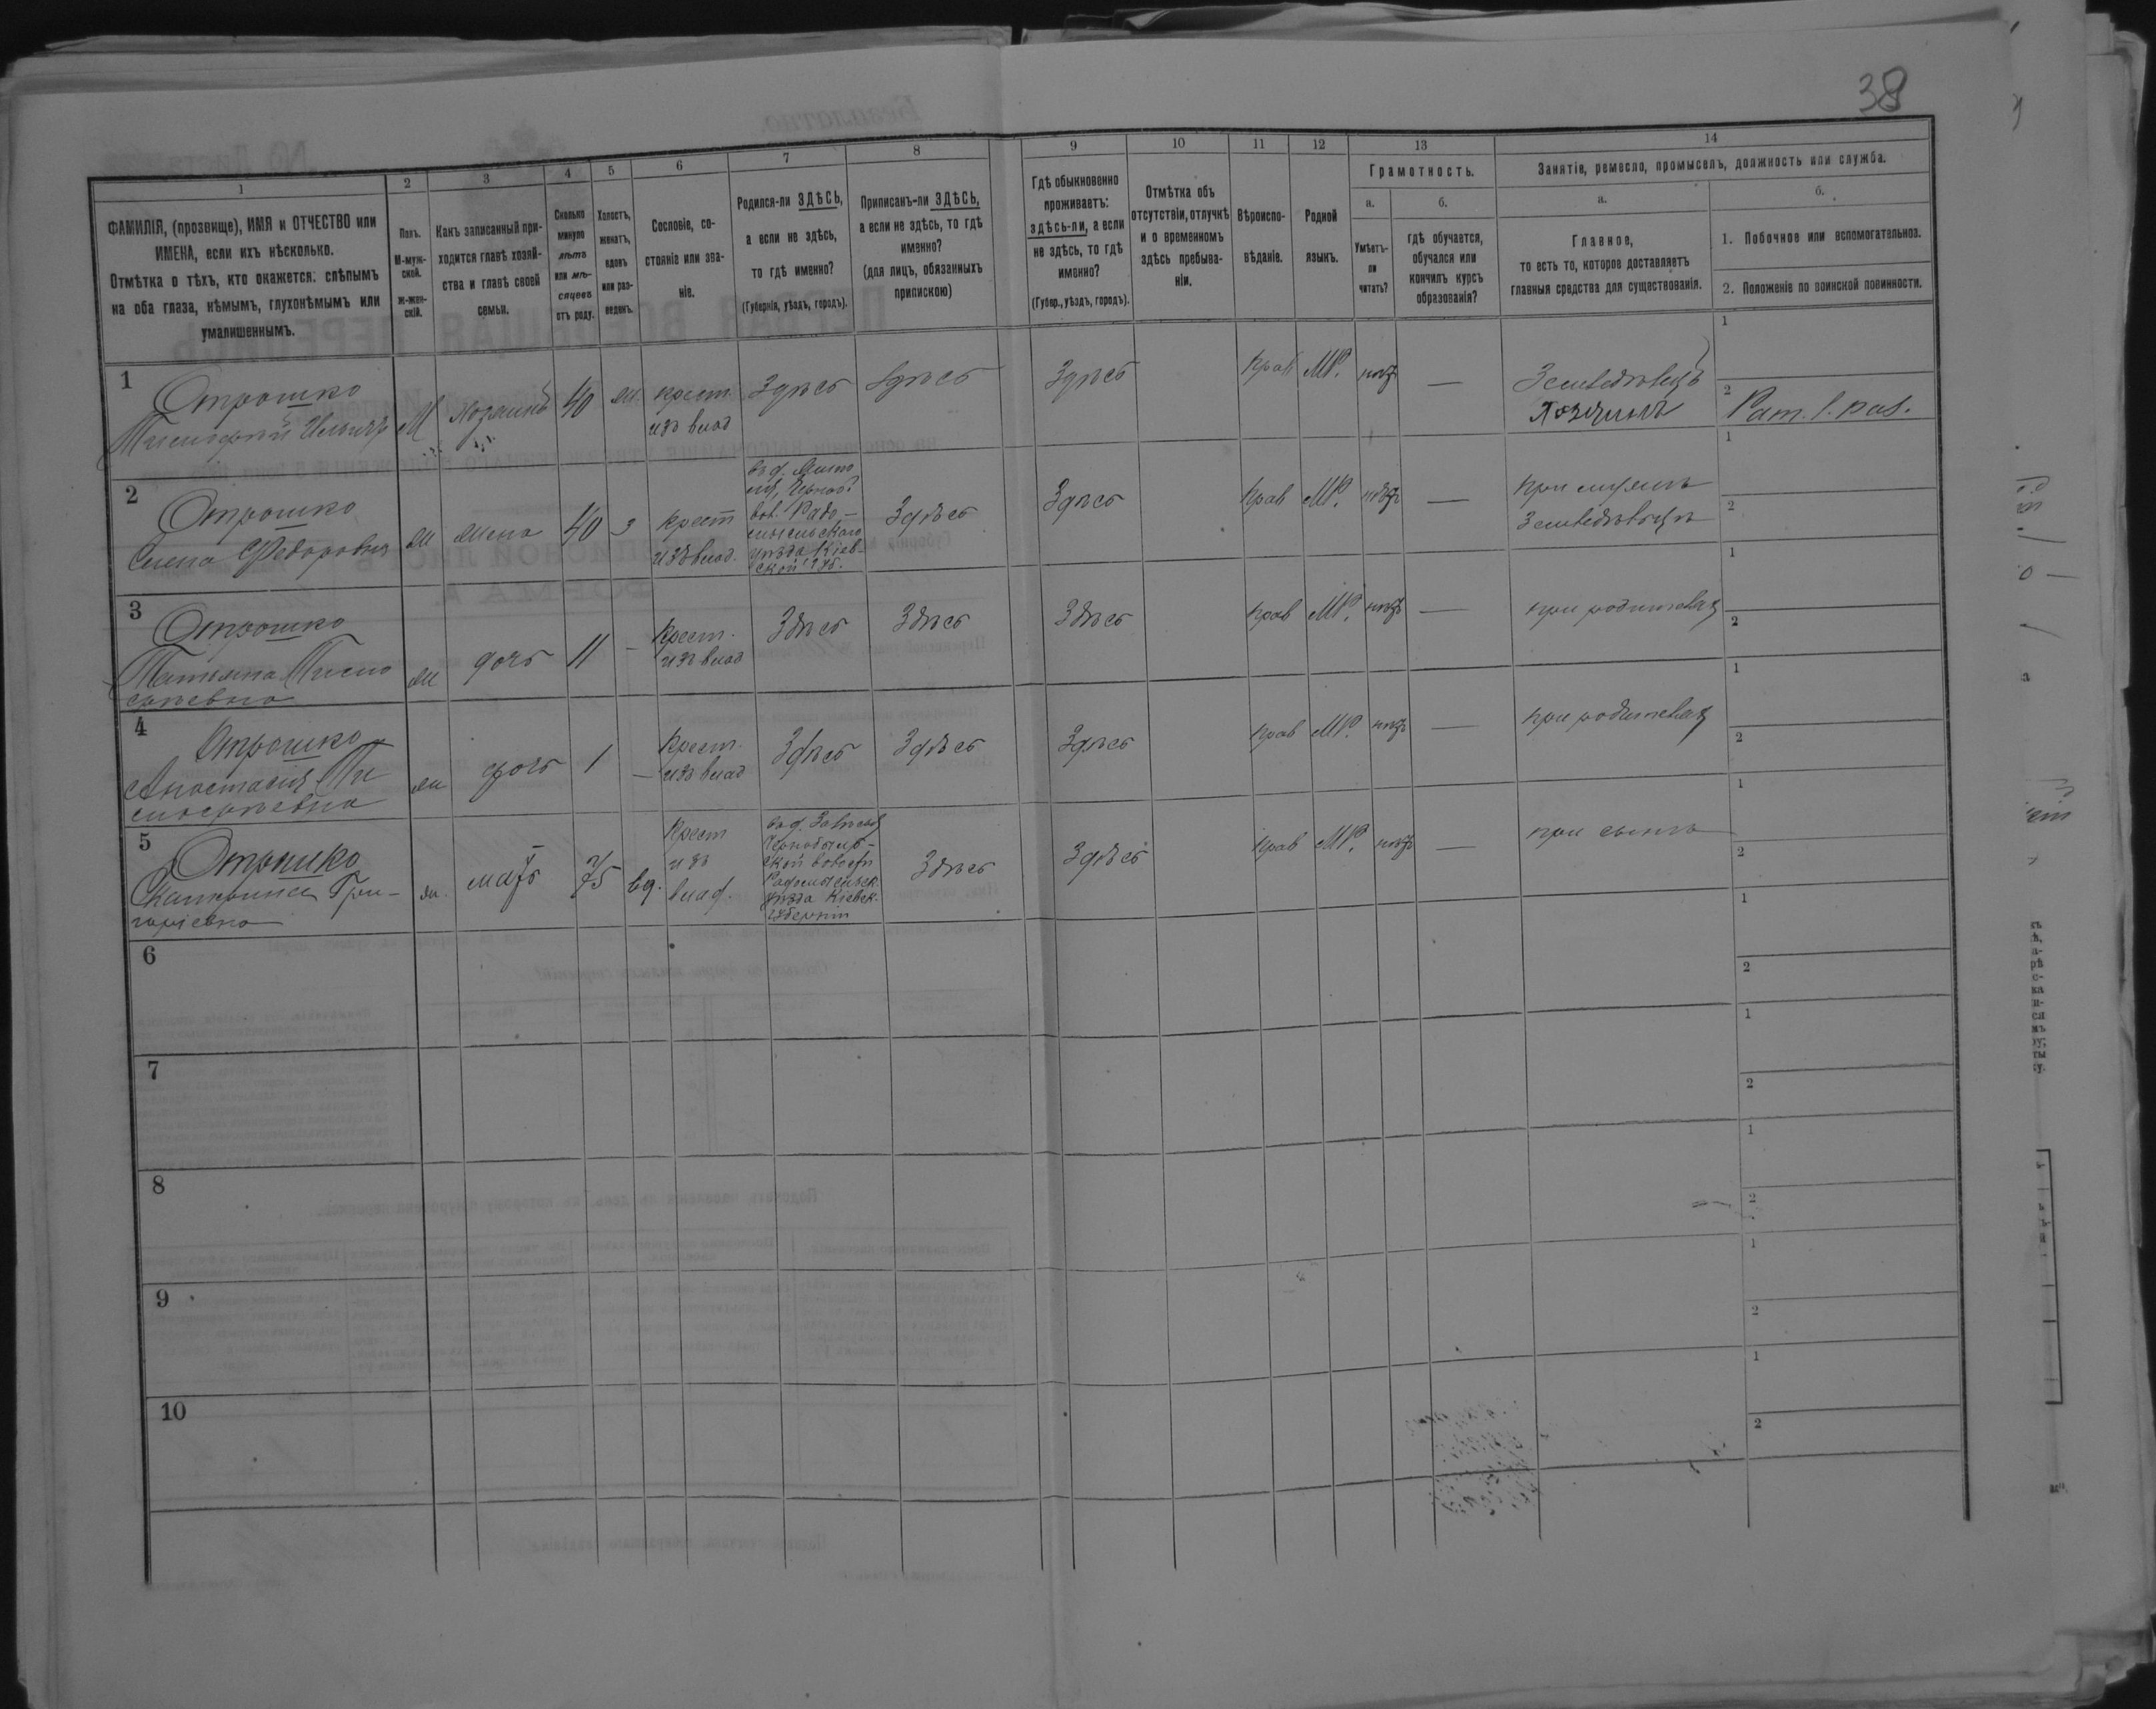 38
1 2 3 4 5 6 7 8 9 10 11 12 13 14
ФАМИЛІЯ, (прозвище), ИМЯ и ОТЧЕСТВО или
ИМЕНА, если ихъ нѣсколько.
Отмѣтка о тѣхъ, кто окажется: слѣпымъ
на оба глаза, нѣмымъ, глухонѣмымъ или
умалишеннымъ.
Полъ.
М-муж-
ской.
Ж-жен-
скій.
Какъ записанный при-
ходится главѣ хозяй-
ства и главѣ своей
семьи.
Сколько
минуло
лѣтъ
или мѣ-
сяцевъ
отъ роду.
Холостъ,
женатъ,
вдовъ
или раз-
веденъ.
Сословіе, со-
стояніе или зва-
ніе.
Родился-ли ЗДѢСЬ,
а если не здѣсь,
то гдѣ именно?
(Губернія, уѣздъ, городъ).
Приписанъ-ли ЗДѢСЬ,
а если не здѣсь, то гдѣ
именно?
(для лицъ, обязанныхъ
припискою)
Гдѣ обыкновенно
проживаетъ:
здѣсь-ли, а если
не здѣсь, то гдѣ
именно?
(Губер., уѣздъ, городъ).
Отмѣтка объ
отсутствіи, отлучкѣ
и о временномъ
здѣсь пребыва-
ніи.
Вѣроиспо-
вѣданіе.
Родной
языкъ.
Грамотность.
а.
Умѣетъ-
ли
читать?
б.
гдѣ обучается,
обучался или
кончилъ курсъ
образованія?
Занятіе, ремесло, промыселъ, должность или служба.
а.
Главное,
то есть то, которое доставляетъ
главныя средства для существованія.
б.
1. Побочное или вспомогательное.
2. Положеніе по воинской повинности.
1
Отрошко
М
Хозяинъ
40
ж.
крест.
изъ влад
Здѣсь
Здѣсь
Здѣсь
прав
МР.
нѣтъ
—
Земледѣлецъ
Хозяинъ
1
2
Рат. 1. раз.
2
Отрошко
Елена Федоровна
ж
жена
40
з
крест
изъ влад.
Радо-
мысльскаго
уѣзда Кіев-
ской губ.
Здѣсь
Здѣсь
прав
МР.
нѣтъ
—
при мужѣ
земледѣльцѣ
1
2
3
Отрошко
Татьяна Тимо
фѣевна
ж
дочь
11
—
Крест.
изъ влад
Здѣсь
Здѣсь
Здѣсь
прав
МР.
нѣтъ
—
при родителяхъ
1
2
4
Отрошко
Анастасія Ти
мофѣевна
ж
дочь
1
—
Крест.
изъ влад
Здѣсь
Здѣсь
Здѣсь
прав
МР.
нѣтъ
—
при родителяхъ
1
2
5
Отрошко
Екатерина Гри-
горіевна
ж.
мать
75
вд.
Крест
изъ
влад.
Чернобыль-
ской волости
Радомысльск.
уѣзда Кіевск.
губерніи
Здѣсь
Здѣсь
прав
МР.
нѣтъ
—
при сынѣ
1
2
6
1
2
7
1
2
8
1
2
9
1
2
10
1
2